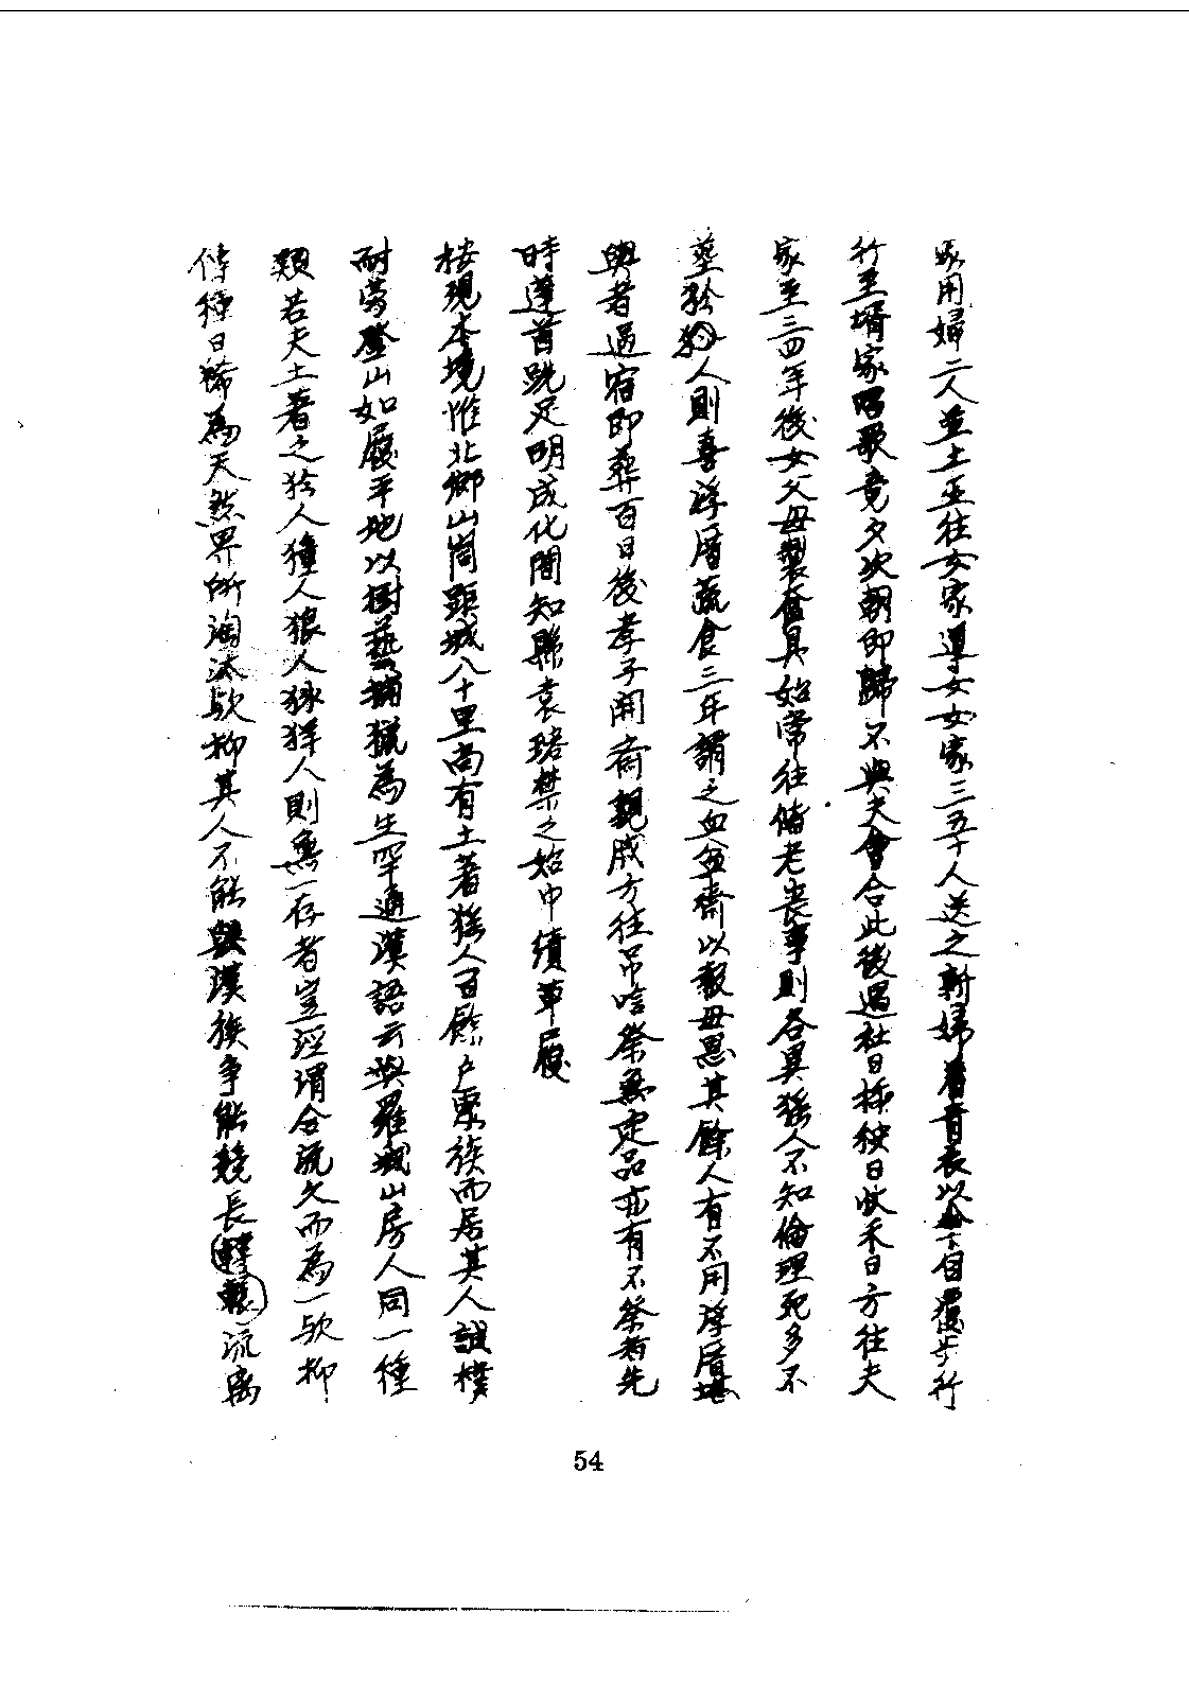 家用婦二人並土巫往女家導女女家三五十人送之新婦着青衣以傘自覆步行
行至壻家唱歌竟夕次朝即歸不與夫會合此後遇社日插秧日收禾日方往夫
家至三四年後女父母製奩具始常往偕老喪事則各異猺人不知倫理死多不
塟狑人則喜浮屠蔬食三年謂之血盆齋以報母恩其餘人有不用浮屠堪
輿者過宿即葬百日後孝子開齋親戚方往吊唁祭無定品亦有不祭者先
時蓬首跣足明成化間知縣袁珞禁之始巾績草履
按現本境惟北鄉山崗距城八十里尚有土著猺人百餘戶聚族而居其人誠樸
耐勞登山如履平地以樹藝捕獵為生罕通漢語云與羅城山房人同一種
類若夫土著之狑人獞人狼人狄獞人則無一存者豈涇渭合流久而為一歟抑
傳種日稀為天然界所淘汰歟抑其人不能與漢族爭能競長轉輾流离
54